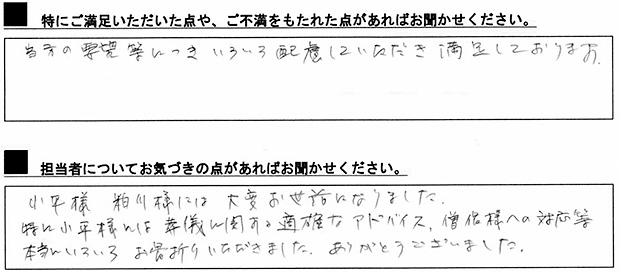 ■ 特にご満足いただいた点や、ご不満をもたれた点があればお聞かせください。
当方の要望等につきいろいろ配慮していただき満足しております。
■ 担当者についてお気づきの点があればお聞かせください。
小平様 粕川様には大変お世話になりました。
特に小平様には葬儀に関する適確なアドバイス、僧侶様への対応等
本当にいろいろお骨折りいただきました。ありがとうございました。